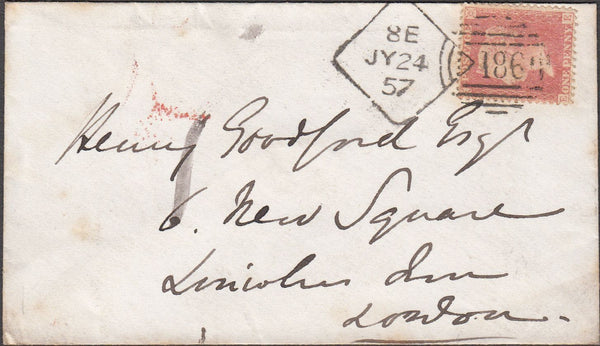 8E
JY24
57
186
ONE PENNY
E
Henry Goodford Esqr
6. New Square
Lincolns Inn
London.